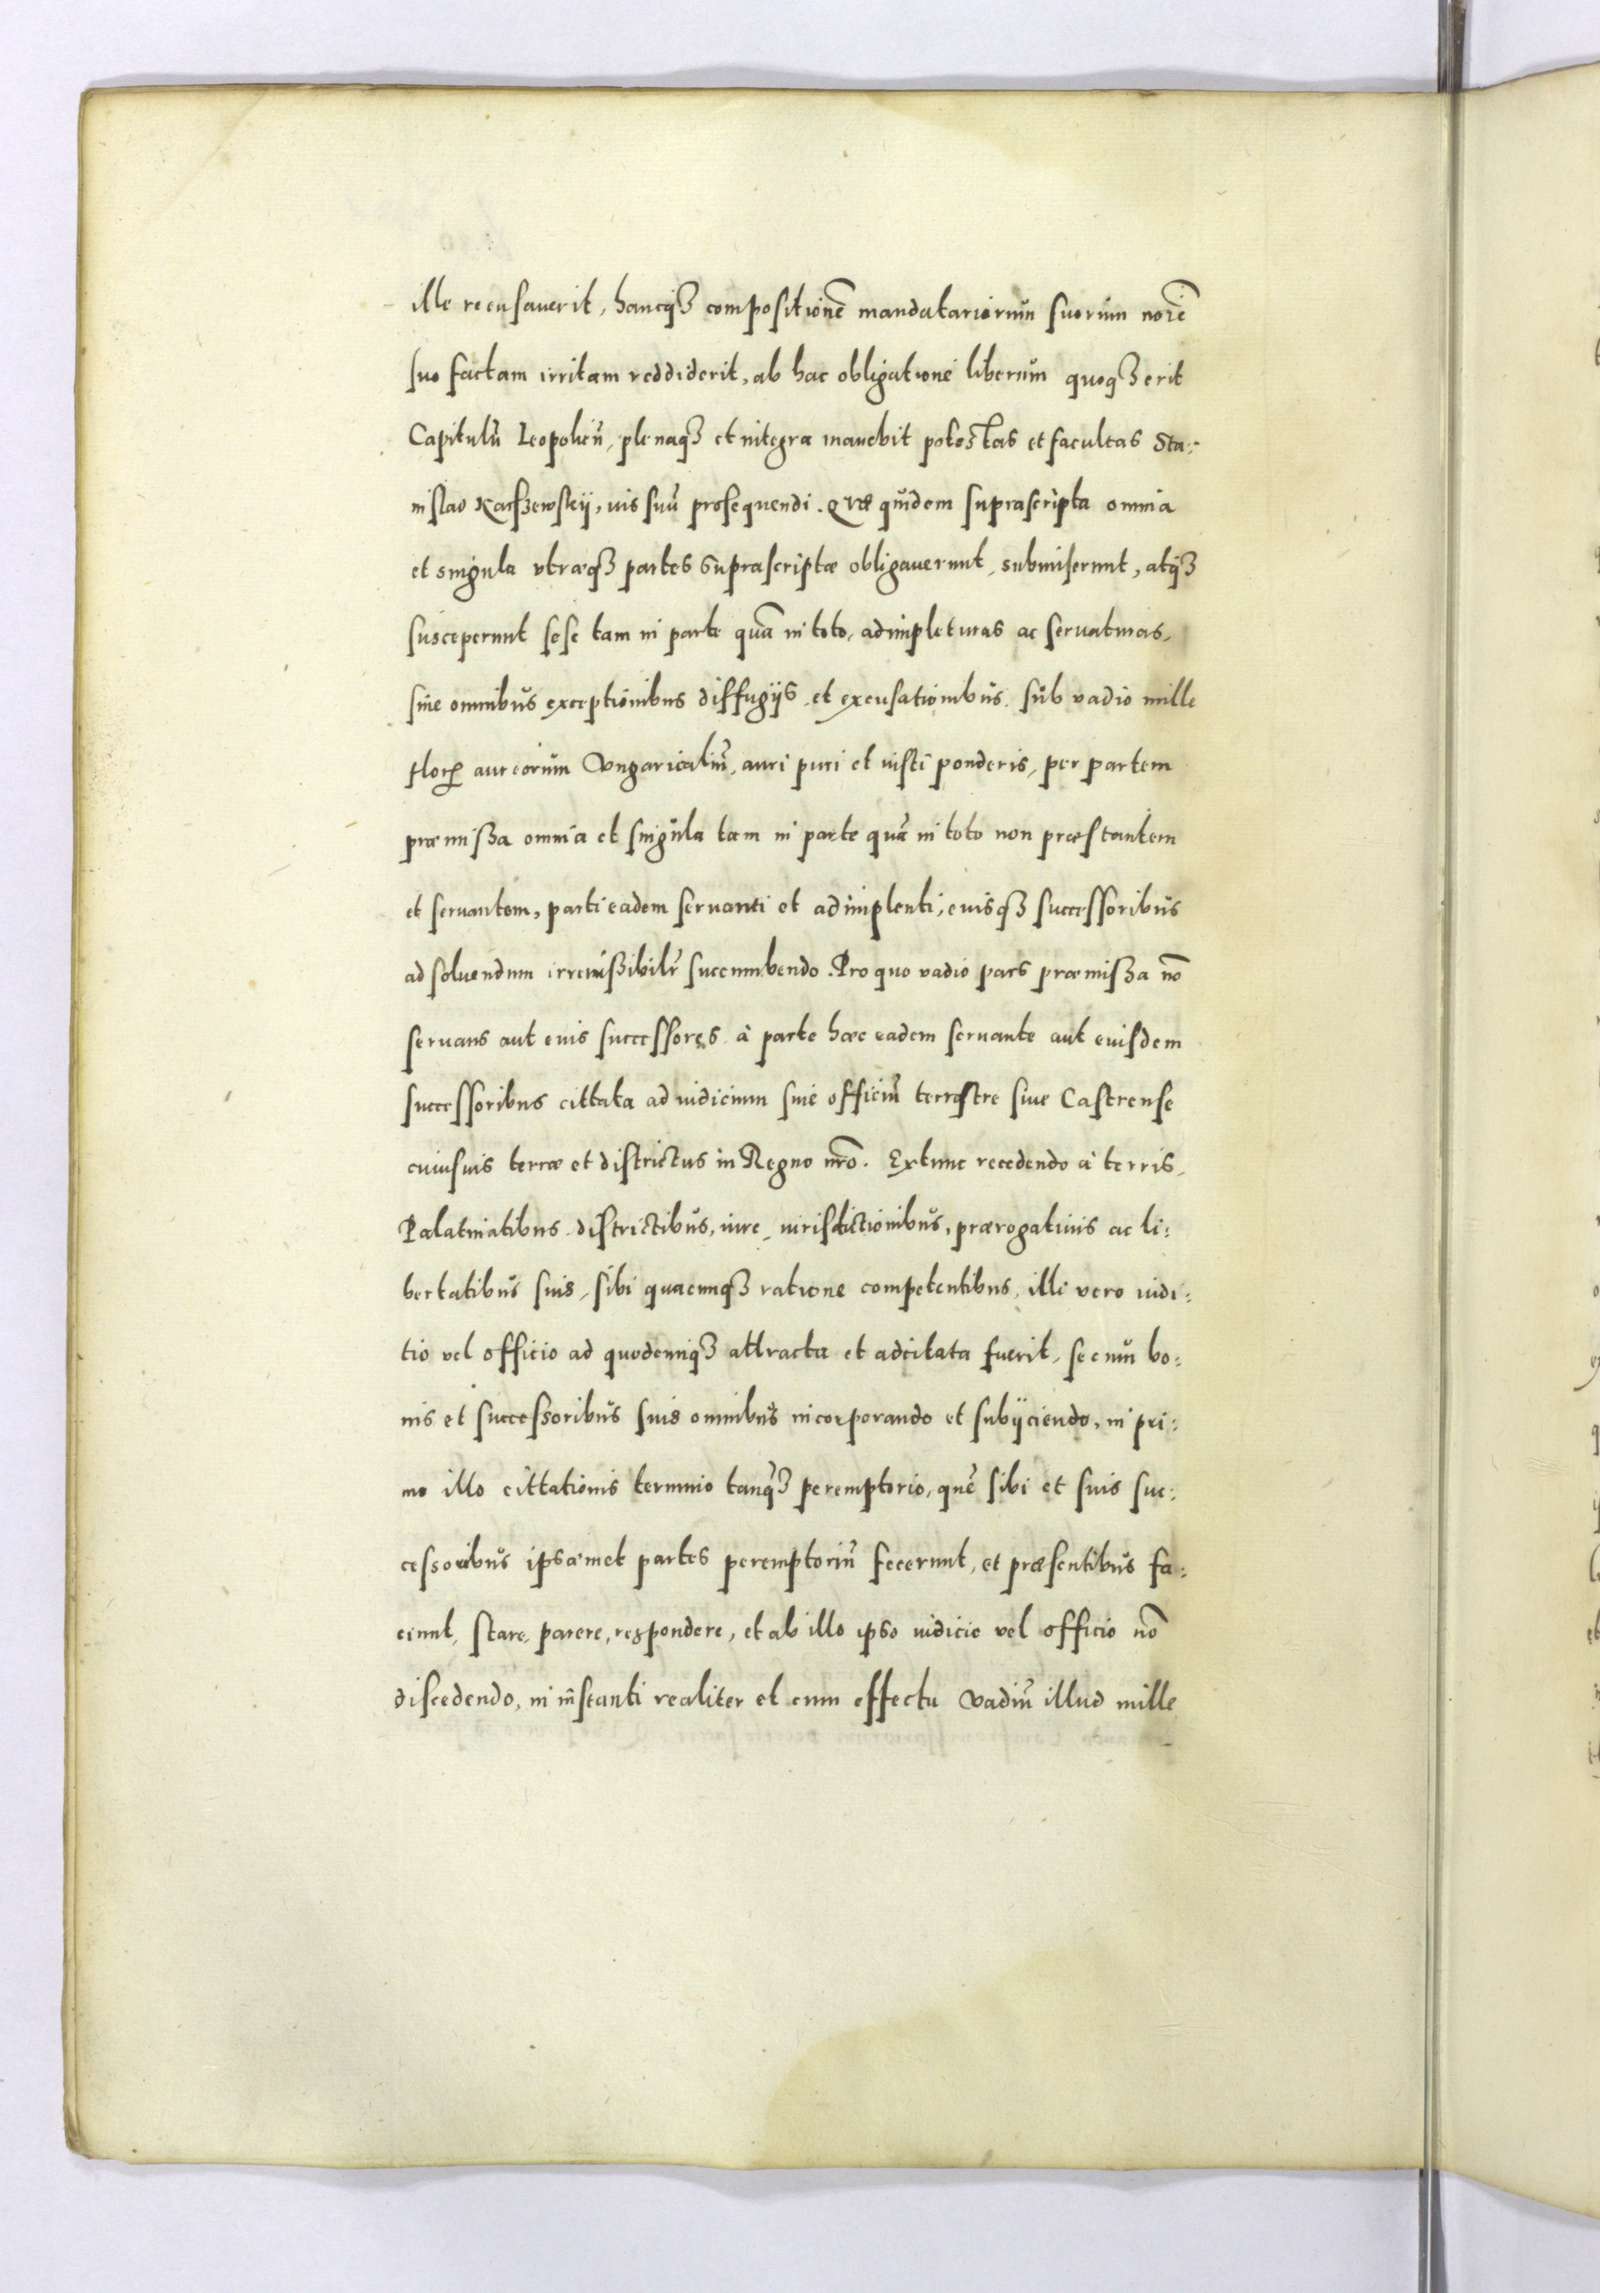 ille recusaverit, hancq₃ compositionē mandatariorum suorum noīe
suo factam irritam reddiderit, ab hac obligatione liberum quoq₃ erit
Capitulū Leopolień, plenaq₃ et integra manebit potestas et facultas Sta:
nislao Karszewskij, ius suū prosequendi. Quæ quidem suprascripta omnia
et singula utræq₃ partes suprascriptæ obligaverunt, submiserunt, atq₃
susceperunt sese tam in parte quā in toto, adimpleturas ac servaturas,
sine omnibus exceptionibus diffugijs et excusationibus sub vadio mille
floꝝ aureorum Ungaricaliū, auri puri et iusti ponderis, per partem
præmissa omnia et singula tam in parte quā in toto non præstantem
et servantem, parti eadem servanti et adimplenti, eiusq₃ successoribus
ad solvendum irremissibilr̄ succumbendo. Pro quo vadio pars præmissa nō
servans aut eius successores à parte hæc eadem servante aut eiusdem
successoribus cittata ad iudicium sive officiū terrestre sive Castrense
cuiusvis terræ et districtus in Regno nr̄o. Extunc recedendo à terris,
Palatinatibus districtibus, iure, iurisdictionibus, prærogativis ac li:
bertatibus suis, sibi quacunq₃ ratione competentibus, illi vero iudi:
tio vel officio ad quodcunq₃ attracta et adcitata fuerit, se cum bo:
nis et successoribus suis omnibus incorporando et subijciendo, in pri:
mo illo cittationis termino tanq̄₃ peremptorio, quē sibi et suis suc:
cessoribus ipsæmet partes peremptoriū fecerunt, et præsentibus fa:
ciunt, stare, parere, respondere, et ab illo ipso iudicio vel officio nō
discedendo, in instanti realiter et cum effectu vadiū illud mille